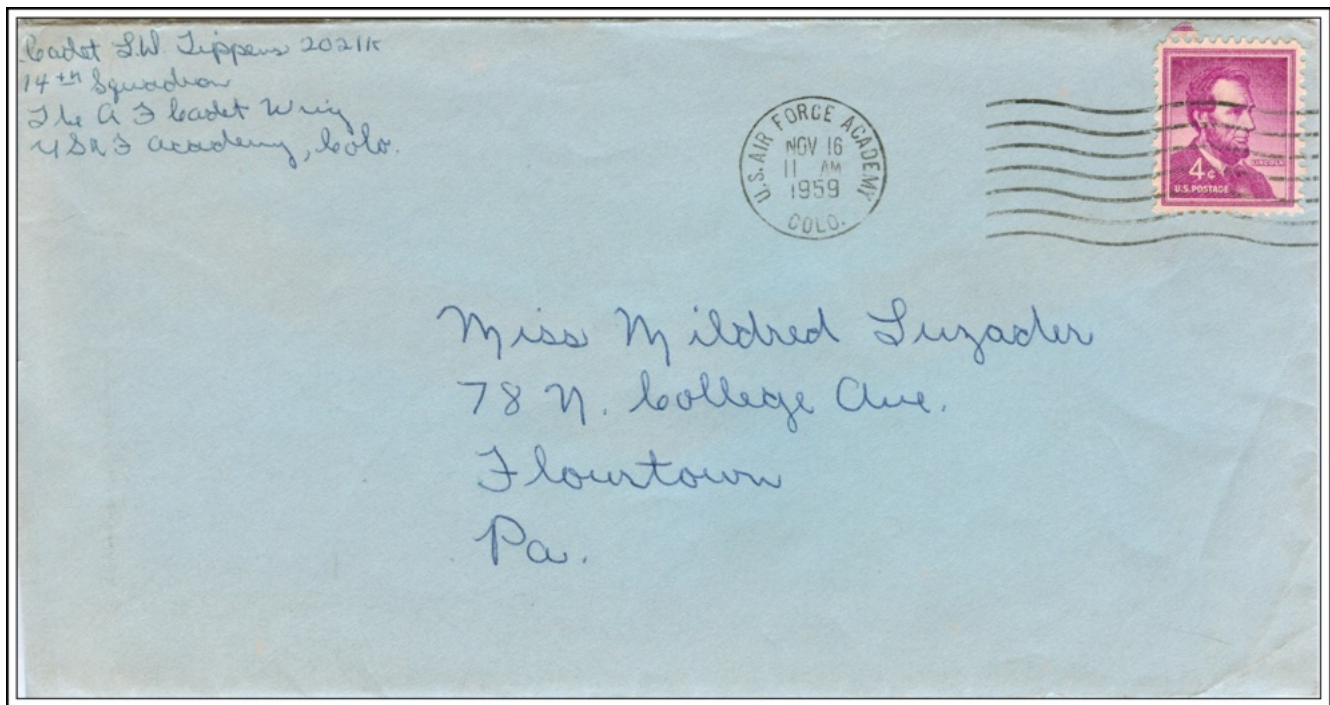 Cadet L.W. Tippens
14th Squadron
The A F Cadet Wing
USAF Academy, Colo.
U.S. AIR FORCE ACADEMY
NOV 16
11 AM
1959
COLO.
LINCOLN
4¢
U.S. POSTAGE
Miss Mildred Luzader
78 N. College Ave.
Flourtown
Pa.